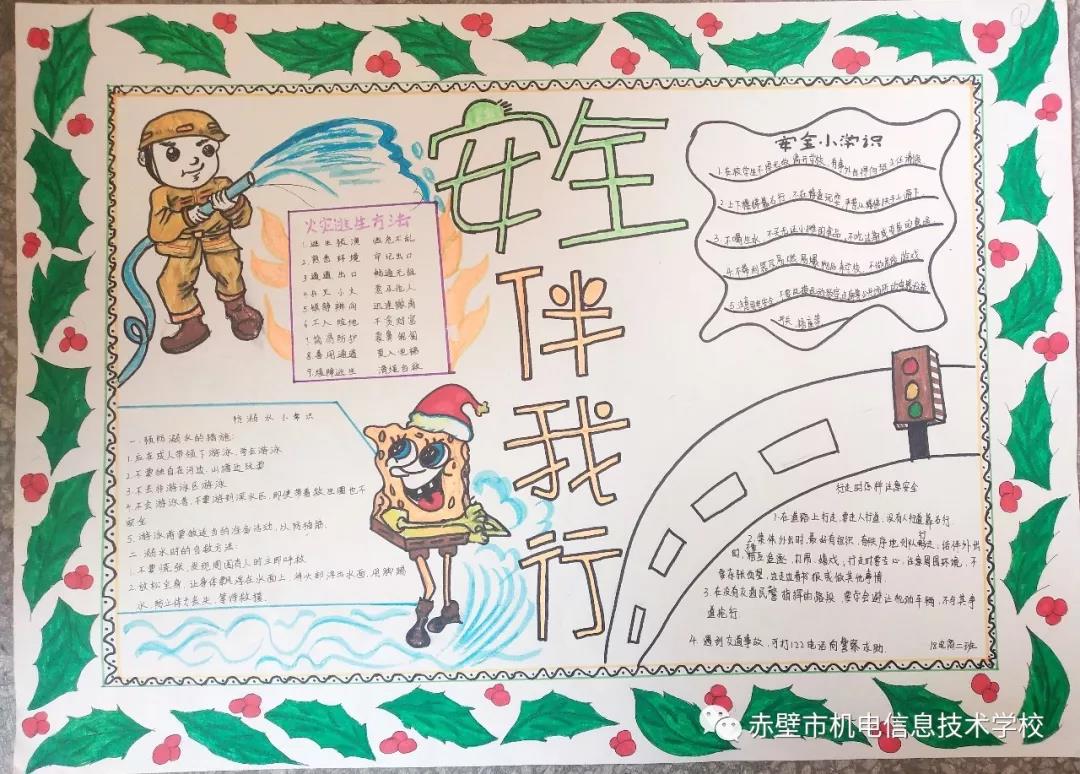 安全
伴
我
行
火灾逃生方法
1.逃生预演 临危不乱
2.熟悉环境 牢记出口
3.通道出口 畅通无阻
4.扑灭小火 惠及他人
5.镇静辨向 迅速撤离
6.不入险地 不贪财富
7.简易防护 蒙鼻匍匐
8.善用通道 莫入电梯
9.缓降逃生 滑绳自救
安全小学识
防溺水小常识
一.预防溺水的措施:
1.应在成人带领下游泳,学会游泳
2.不要独自在河边、山塘边玩耍
3.不去非游泳区游泳
4.不会游泳者,不要游到深水区,即使带着救生圈也不
安全
5.游泳前要做适当的准备活动,以防抽筋.
二.溺水时的自救方法:
1.不要慌张,发现周围有人时立即呼救
2.放松全身,让身体飘浮在水面上,将头部浮出水面,用脚踢
水,防止体力丧失,等待救援.
行走时怎样注意安全
1.在道路上行走,要走人行道,没有人行道靠右行.
2.集体外出时,最好有组织,有秩序地列队行走;结伴外出
时,不要相互追逐、打闹、嬉戏;行走时要专心,注意周围环境,不
要东张西望,边走边看书报或做其他事情.
3.在没有交通民警指挥的路段,要学会避让机动车辆,不与其争
道抢行.
4.遇到交通事故,可打122电话向警察求助.
18电商二班
赤壁市机电信息技术学校